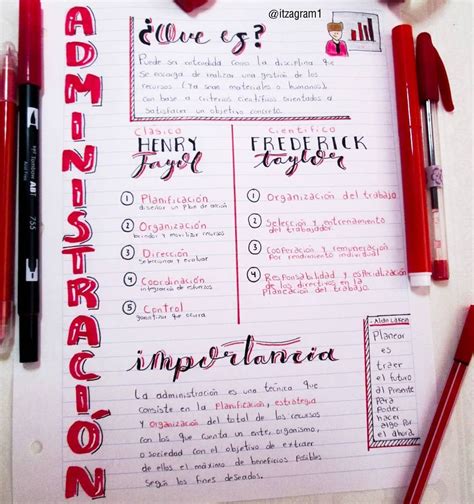 @itzagram1
ADMINISTRACIÓN
¿Que es?
Puede ser entendida como la disciplina que
se encarga de realizar una gestión de los
recursos (ya sean materiales o humanos)
con base a criterios científicos orientados a
satisfacer un objetivo concreto.
Clásico
HENRY
Fayol
1 Planificación
diseñar un plan de acción
2 Organización
brindar y movilizar recursos
3 Dirección
Seleccionar y evaluar
4 Coordinación
integración de esfuerzos
5 Control
garantizar que ocurra
Científico
FREDERICK
taylor
1 Organización del trabajo
2 Selección y entrenamiento
del trabajador.
3 Cooperación y remuneración
por rendimiento individual
4 Responsabilidad y especialización
de los directivos en la
planeación del trabajo.
importancia
La administración es una técnica que
consiste en la planificación, estrategia
y organización del total de los recursos
con los que cuenta un ente, organismo,
o sociedad con el objetivo de extraer
de ellos el máximo de beneficios posibles
según los fines deseados.
Planear
es
traer
el futuro
al presente
para
poder
hacer
algo por
el ahora
Tombow ABT
755